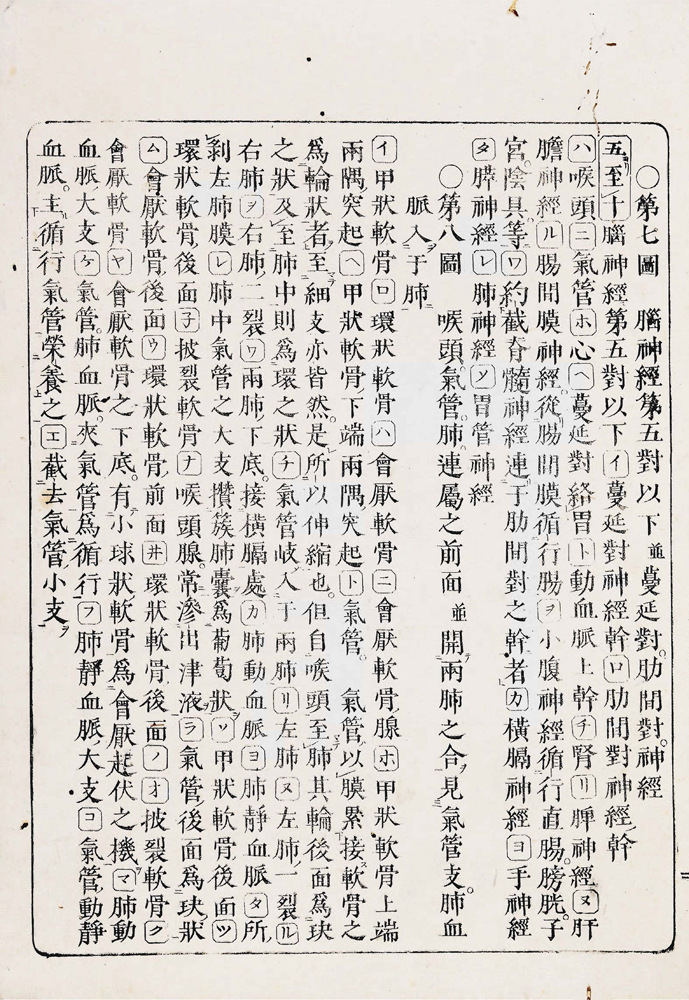 ○第七圖　腦神經第五對以下並蔓延對。肋間對。神經
五至十腦神經第五對以下イ蔓延對神經幹ロ肋間對神經幹
ハ喉頭ニ氣管ホ心ヘ蔓延對絡胃ト動血脈上幹チ腎リ脾神經ヌ肝
膽神經ル腸間膜神經。從腸間膜循行腸ヲ小腹神經循行直腸。膀胱。子
宮陰具等ワ約截脊髓神經連于肋間對之幹者カ橫膈神經ヨ手神經
タ膵神經レ肺神經ソ胃管神經
○第八圖　喉頭。氣管。肺。連屬之前面並開兩肺之合見氣管支。肺血
脈入于肺
イ甲狀軟骨ロ環狀軟骨ハ會厭軟骨ニ會厭軟骨腺ホ甲狀軟骨上端
兩隅突起ヘ甲狀軟骨下端兩隅突起ト氣管。氣管以膜累接軟骨之
爲輪狀者。至細支亦皆然。是所以伸縮也。但自喉頭至肺其輪後面爲玦
之狀及至肺中則爲環之狀チ氣管岐入于兩肺リ左肺ヌ左肺一裂ル
右肺ヲ右肺二裂ワ兩肺下底。接橫膈處カ肺動血脈ヨ肺靜血脈タ所
剥左肺膜レ肺中氣管之大支攢簇肺囊爲葡萄狀ソ甲狀軟骨後面ツ
環狀軟骨後面子披裂軟骨ナ喉頭腺。常滲出津液ラ氣管後面爲玦狀
ム會厭軟骨後面ウ環狀軟骨前面井環狀軟骨後面ノオ披裂軟骨ク
會厭軟骨ヤ會厭軟骨之下底。有小球狀軟骨爲會厭起伏之機マ肺動
血脈大支ケ氣管。肺血脈。夾氣管爲循行フ肺靜血脈大支コ氣管動靜
血脈。主循行氣管榮養之エ截去氣管小支